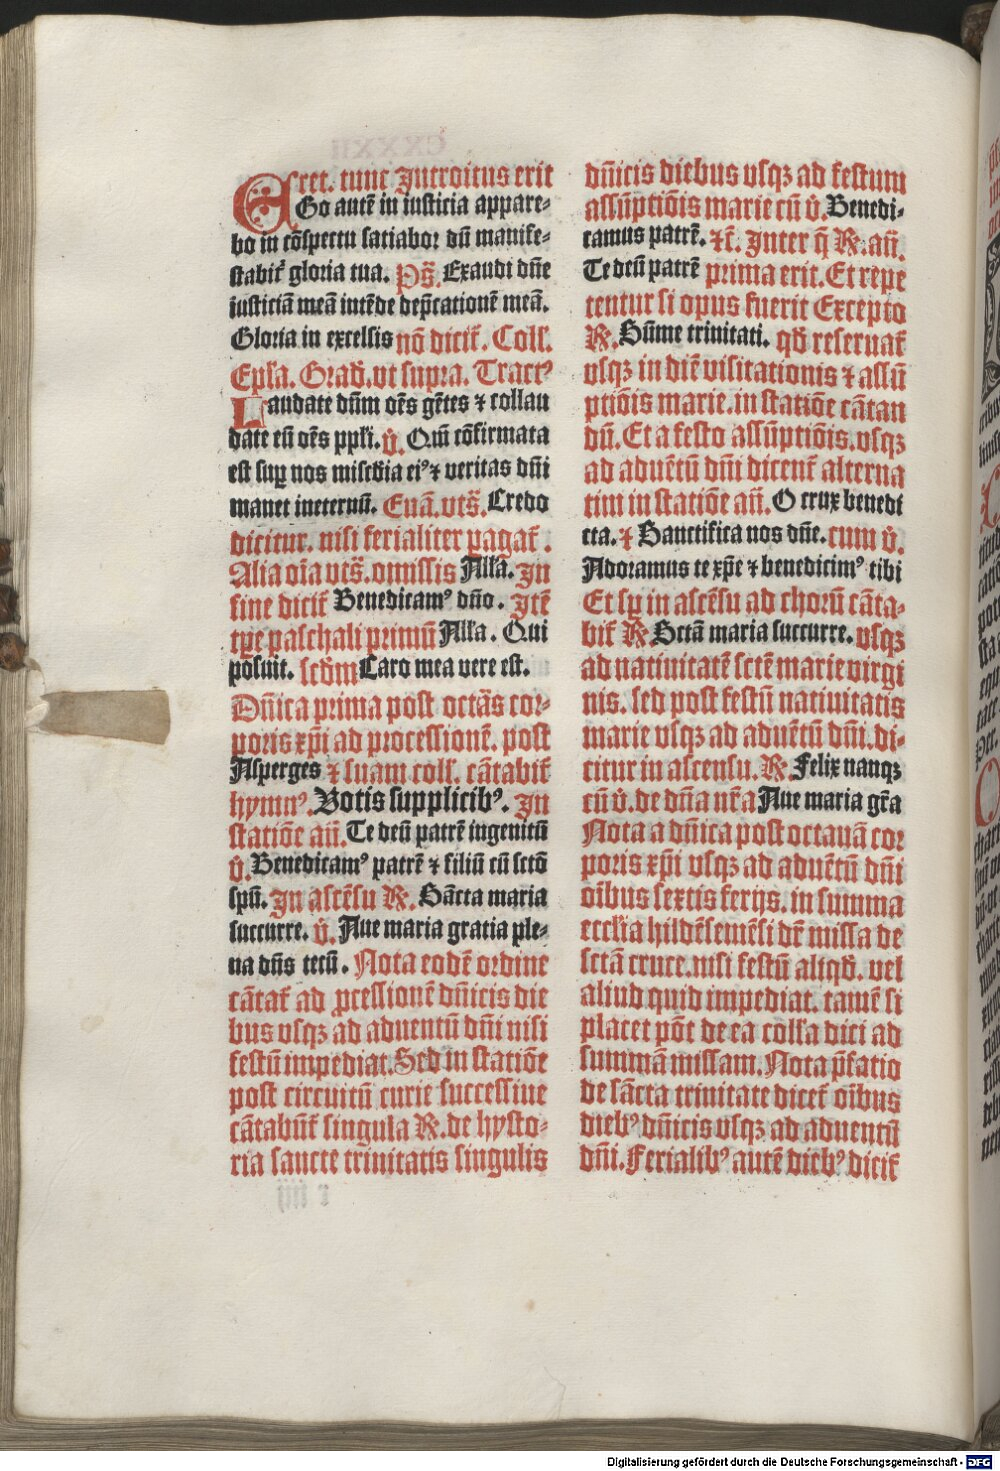 ret. tunc Introitus erit
EGo autē in iusticia appare-
bo in cōspectu satiabor dū manife-
stabit᷑ gloria tua. Ps̄. Exaudi dn̄e
iusticiā meā intēde dep̄cationē meā.
Gloria in excelsis nō dicit᷑. Coll.
Ep̄la. Grad. vt supra. Tractꝰ
Laudate dn̄m oēs gētes ⁊ collau
date eū oēs pp̄li. v̄. Qm̄ cōfirmata
est suꝑ nos misc̄dia eiꝰ ⁊ veritas dn̄i
manet ineternū. Euā. vts̄. Credo
dicitur. nisi ferialiter pagat᷑.
Alia oīa vts̄. omissis All̄a. In
fine dicit᷑ Benedicamꝰ dn̄o. Itē
tp̄e paschali primū All̄a. Qui
posuit. scd̄m Caro mea vere est.
Dn̄ica prima post octās cor-
poris xp̄i ad processionē. post
Asperges ⁊ suam coll. cātabit᷑
hymnꝰ. Votis supplicibꝰ. In
statiōe an̄. Te deū patrē ingenitū
v̄. Benedicamꝰ patrē ⁊ filiū cū sctō
spū. In ascēsu R̄. Sācta maria
succurre. v̄. Aue maria gratia ple-
na dn̄s tecū. Nota eodē ordine
cātat᷑ ad ꝓcessionē dn̄icis die
bus vsqꝫ ad aduentū dn̄i nisi
festū impediat. Sed in statiōe
post circuitū curie successiue
cātabūt᷑ singula R̄. de hysto-
ria sancte trinitatis singulis
dn̄icis diebus vsqꝫ ad festum
assūptiōis marie cū v̄. Benedi-
camus patrē. ⁊c̄. Inter q̄ R̄. an̄.
Te deū patrē prima erit. Et repe
tentur si opus fuerit Excepto
R̄. Sūme trinitati. qd̄ reseruat᷑
vsqꝫ in diē visitationis ⁊ assū
ptiōis marie. in statiōe cātan
dū. Et a festo assūptiōis. vsqꝫ
ad aduētū dn̄i dicent᷑ alterna
tim in statiōe an̄. O crux benedi
cta. ⁊ Sanctifica nos dn̄e. cum v̄.
Adoramus te xp̄e ⁊ benedicimꝰ tibi
Et sꝑ in ascēsu ad chorū cāta-
bit᷑ R̄ Sctā maria succurre. vsqꝫ
ad natiuitatē sctē marie virgi
nis. sed post festū natiuitatis
marie vsqꝫ ad aduētū dn̄i. di-
citur in ascensu. R̄. Felix nanqꝫ
cū v̄. de dn̄a nr̄a Aue maria gr̄a
Nota a dn̄ica post octauā cor
poris xp̄i vsqꝫ ad aduētū dn̄i
oībus sextis ferijs. in summa
eccl̄ia hildēsemēsi dr̄ missa de
sctā cruce. nisi festū aliqd̄. vel
aliud quid impediat. tamē si
placet pōt de ea coll̄a dici ad
summā missam. Nota p̄fatio
de sācta trinitate dicet᷑ oībus
diebꝰ dn̄icis vsqꝫ ad aduentū
dn̄i. Ferialibꝰ autē diebꝰ dicit᷑
Digitalisierung gefördert durch die Deutsche Forschungsgemeinschaft - DFG